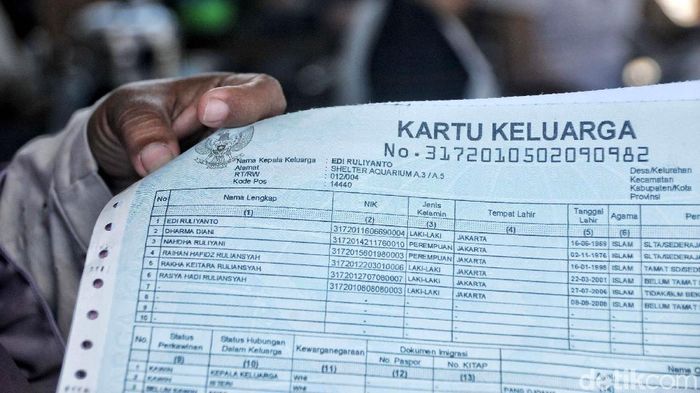 KARTU KELUARGA
No. 3172010502090982
Nama Kepala Keluarga : EDI RULIYANTO
Alamat : SHELTER AQUARIUM A.3 / A.5
RT/RW : 012/004
Kode Pos : 14440
Desa/Kelurahan
Kecamatan
Kabupaten/Kota
Provinsi
No Nama Lengkap NIK Jenis Kelamin Tempat Lahir Tanggal Lahir Agama
(1) (2) (3) (4) (5) (6)
1 EDI RULIYANTO 3172011606690004 LAKI-LAKI JAKARTA 16-06-1969 ISLAM SLTA/SEDERAJA
2 DHARMA DIANI 3172014211760010 PEREMPUAN JAKARTA 02-11-1976 ISLAM SLTA/SEDERA
3 NAHDHA RULIYANI 3172015601980003 PEREMPUAN JAKARTA 16-01-1998 ISLAM TAMAT SD/
4 RAIHAN HAFIDZ RULIANSYAH 3172012203010006 LAKI-LAKI JAKARTA 22-03-2001 ISLAM BELUM TAM
5 RAKHA KEITARA RULIANSYAH 3172012707080007 LAKI-LAKI JAKARTA ISLAM
6 RASYA HADI RULIANSYAH 3172010808080003 LAKI-LAKI JAKARTA ISLAM BELUM TA
7 -
8 -
9 -
10 -
No. Status Perkawinan Status Hubungan Dalam Keluarga Kewarganegaraan Dokumen Imigrasi
No. Paspor No. KITAP
(9) (10) (11) (12) (13)
1 KAWIN KEPALA KELUARGA WNI
2 KAWIN ISTERI WNI
detikcom